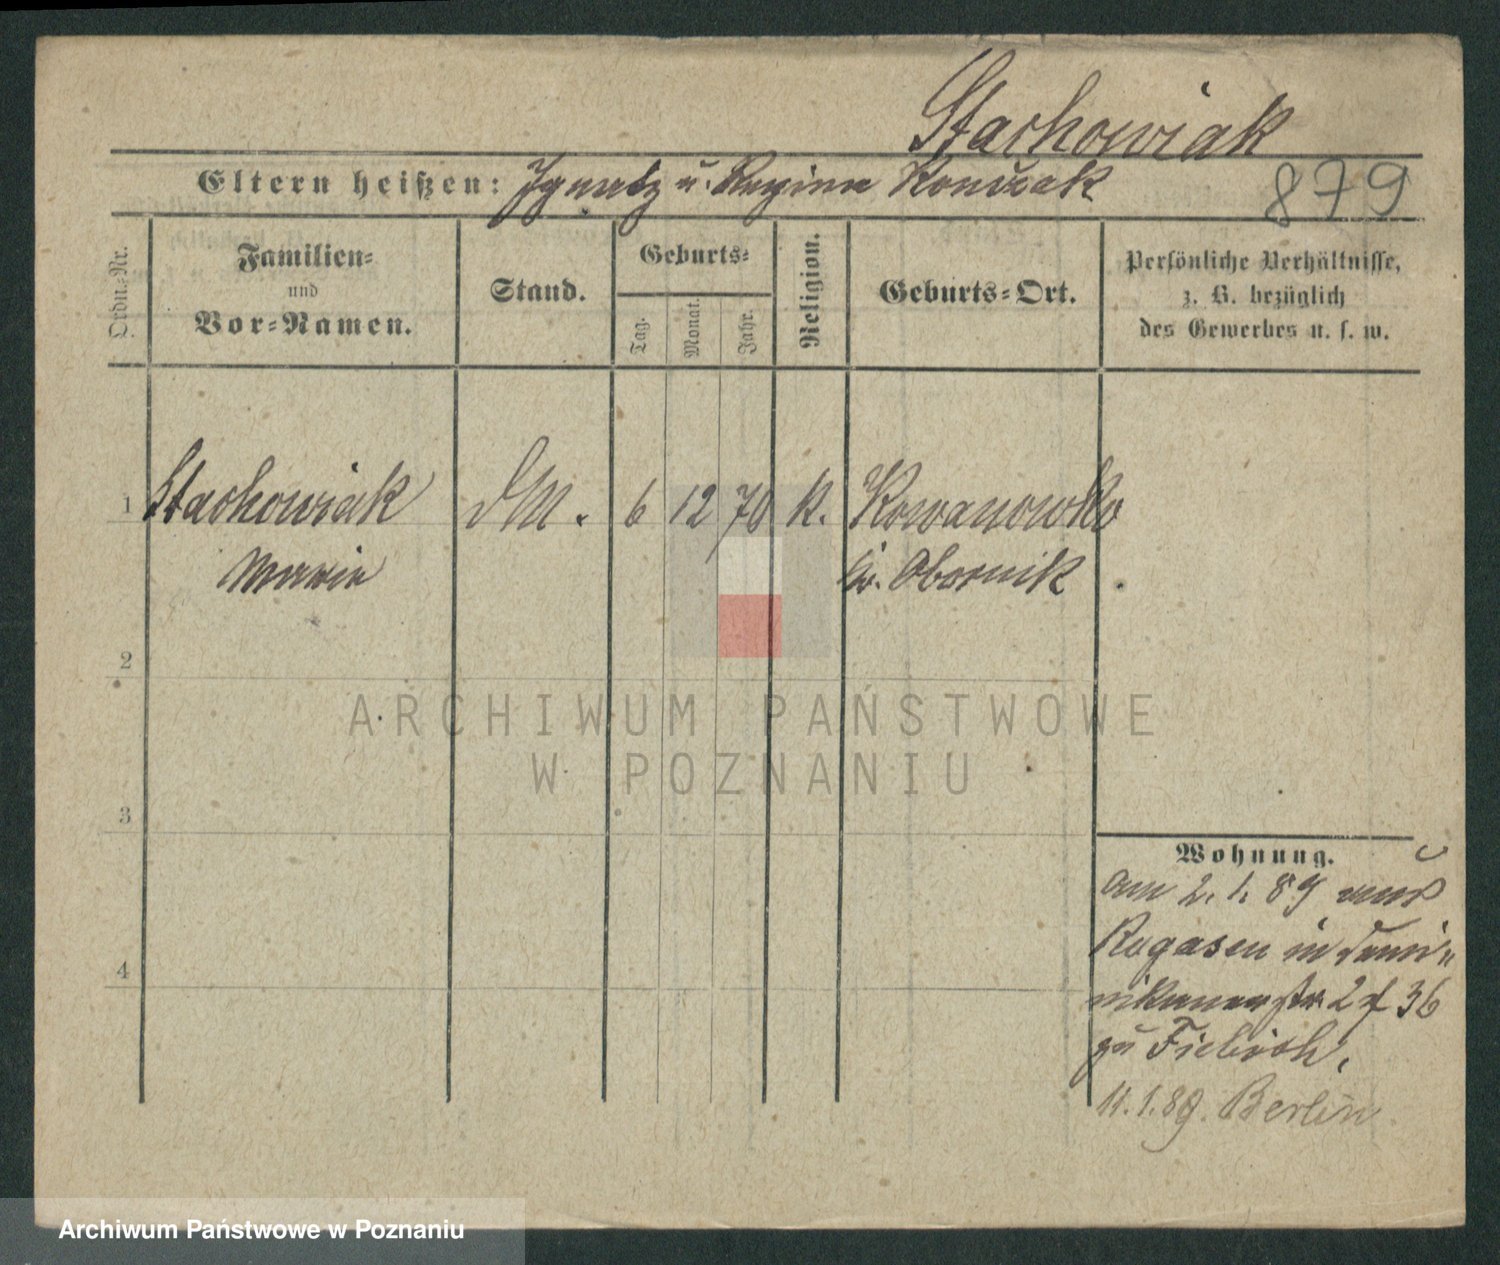 Stachowiak
Eltern heißen: Ignatz u. Regina Konczak
879
Ordn.-Nr.
Familien-
und
Vor-Namen.
Stand.
Geburts-
Tag.
Monat.
Jahr.
Religion.
Geburts-Ort.
Persönliche Verhältnisse,
z. B. bezüglich
des Gewerbes u. s. w.
1 Stachowiak DM. 6 12 70 K. Kowanowko
Maria Kr. Obornik
2
3
4
Wohnung.
Am 2.1.89 aus
Rogasen in Domi-
nikanerstr 2 36
zu Fiebich.
11.1.89. Berlin
ARCHIWUM PAŃSTWOWE
W POZNANIU
Archiwum Państwowe w Poznaniu